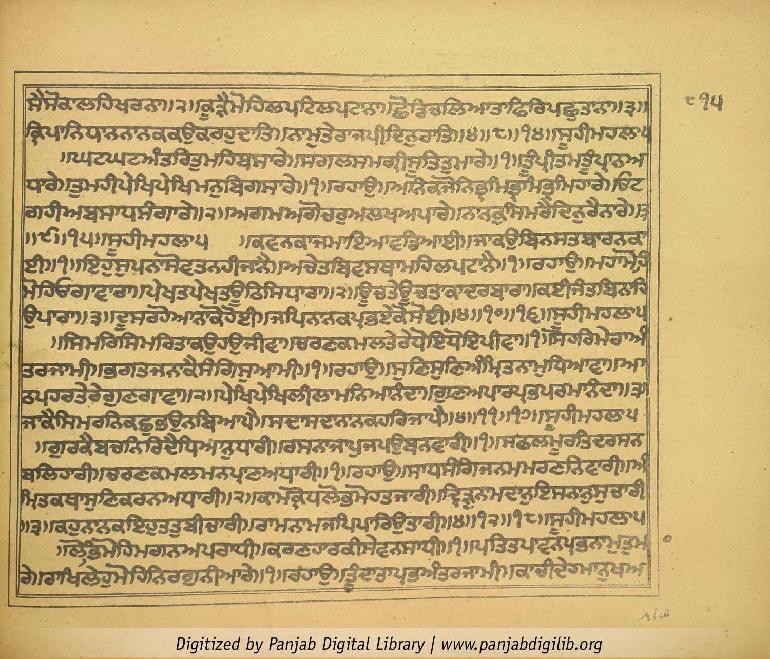 ॥੨॥ਕੂੜੈਮੋਹਿਲਪਟਿਲਪਟਾਨਾ॥ਛੋਡਿਚਲਿਆਤਾਫਿਰਿਪਛੁਤਾਨਾ॥੩॥
ਕ੍ਰਿਪਾਨਿਧਾਨਨਾਨਕਕਉਕਰਹੁਦਾਤਿ॥ਨਾਮੁਤੇਰਾਜਪੀਦਿਨੁਰਾਤਿ॥੪॥੮॥੧੪॥ਸੂਹੀਮਹਲਾ੫
॥ਘਟਘਟਅੰਤਰਿਤੁਮਹਿਬਸਾਰੇ॥ਸਗਲਸਮਗ੍ਰੀਸੂਤਿਤੁਮਾਰੇ॥੧॥ਤੂੰਪ੍ਰੀਤਮਤੂੰਪ੍ਰਾਨਅ
ਧਾਰੇ॥ਤੁਮਹੀਪੇਖਿਪੇਖਿਮਨੁਬਿਗਸਾਰੇ॥੧॥ਰਹਾਉ॥ਅਨਿਕਜੋਨਿਭ੍ਰਮਿਭ੍ਰਮਿਭ੍ਰਮਿਹਾਰੇ॥ਓਟ
ਗਹੀਅਬਸਾਧਸੰਗਾਰੇ॥੨॥ਅਗਮਅਗੋਚਰੁਅਲਖਅਪਾਰੇ॥ਨਾਨਕੁਸਿਮਰੈਦਿਨੁਰੈਨਾਰੇ॥੩
॥੯॥੧੫॥ਸੂਹੀਮਹਲਾ੫ ॥ਕਵਨਕਾਜਮਾਇਆਵਡਿਆਈ॥ਜਾਕਉਬਿਨਸਤਬਾਰਨਕਾ
ਈ॥੧॥ਇਹੁਸੁਪਨਾਸੋਵਤਨਹੀਜਾਨੈ॥ਅਚੇਤਬਿਵਸਥਾਮਹਿਲਪਟਾਨੈ॥੧॥ਰਹਾਉ॥ਮਹਾਮੋਹਿ
ਮੋਹਿਓਗਾਵਾਰਾ॥ਪੇਖਤਪੇਖਤਊਠਿਸਿਧਾਰਾ॥੨॥ਊਚਤੇਊਚਤਾਕਾਦਰਬਾਰਾ॥ਕਈਜੰਤਬਿਨਾਹਿ
ਉਪਾਰਾ॥੩॥ਦੂਸਰਹੋਆਨਾਕੋਹੋਈ॥ਜਪਿਨਾਨਕਪ੍ਰਭਏਕੋਸੋਈ॥੪॥੧੦॥੧੬॥ਸੂਹੀਮਹਲਾ੫
॥ਸਿਮਰਿਸਿਮਰਿਤਾਕਉਹਉਜੀਵਾ॥ਚਰਣਕਮਲਤੇਰੇਧੋਇਧੋਇਪੀਵਾ॥੧॥ਸੋਹਰਿਮੇਰਾਅੰ
ਤਰਜਾਮੀ॥ਭਗਤਜਨਾਕੈਸੰਗਿਸੁਆਮੀ॥੧॥ਰਹਾਉ॥ਸੁਣਿਸੁਣਿਅੰਮ੍ਰਿਤਨਾਮੁਧਿਆਵਾ॥ਆ
ਠਪਹਰਤੇਰੇਗੁਣਗਾਵਾ॥੨॥ਪੇਖਿਪੇਖਿਲੀਲਾਮਨਿਆਨੰਦਾ॥ਗੁਣਅਪਾਰਪ੍ਰਭਪਰਮਾਨੰਦਾ॥੩॥
ਜਾਕੈਸਿਮਰਨਿਕਛੁਭਉਨਬਿਆਪੈ॥ਸਦਾਸਦਾਨਾਨਕਹਰਿਜਾਪੈ॥੪॥੧੧॥੧੭॥ਸੂਹੀਮਹਲਾ੫
॥ਗੁਰਕੈਬਚਨਿਰਿਦੈਧਿਆਨੁਧਾਰੀ॥ਰਸਨਾਜਾਪੁਜਪਉਬਨਵਾਰੀ॥੧॥ਸਫਲਮੂਰਤਿਦਰਸਨ
ਬਲਿਹਾਰੀ॥ਚਰਣਕਮਲਮਨਪ੍ਰਾਣਅਧਾਰੀ॥੧॥ਰਹਾਉ॥ਸਾਧਸੰਗਿਜਨਮਮਰਣਨਿਵਾਰੀ॥ਅੰ
ਮ੍ਰਿਤਕਥਾਸੁਣਿਕਰਨਅਧਾਰੀ॥੨॥ਕਾਮਕ੍ਰੋਧਲੋਭਮੋਹਤਜਾਰੀ॥ਦ੍ਰਿੜੁਨਾਮਦਾਨੁਇਸਨਾਨੁਸੁਚਾਰੀ
॥੩॥ਕਹੁਨਾਨਕਇਹੁਤਤੁਬੀਚਾਰੀ॥ਰਾਮਨਾਮਜਪਿਪਾਰਿਉਤਾਰੀ॥੪॥੧੨॥੧੮॥ਸੂਹੀਮਹਲਾ੫
॥ਲੋਭਿਮੋਹਿਮਗਨਅਪਰਾਧੀ॥ਕਰਣਹਾਰਕੀਸੇਵਨਸਾਧੀ॥੧॥ਪਤਿਤਪਾਵਨਪ੍ਰਭਨਾਮਤੁਮਾ
ਰੇ॥ਰਾਖਿਲੇਹੁਮੋਹਿਨਿਰਗੁਨੀਆਰੇ॥੧॥ਰਹਾਉ॥ਤੂੰਦਾਤਾਪ੍ਰਭਅੰਤਰਜਾਮੀ॥ਕਾਚੀਦੇਹਮਾਨੁਖਅ
Digitized by Panjab Digital Library | www.panjabdigilib.org